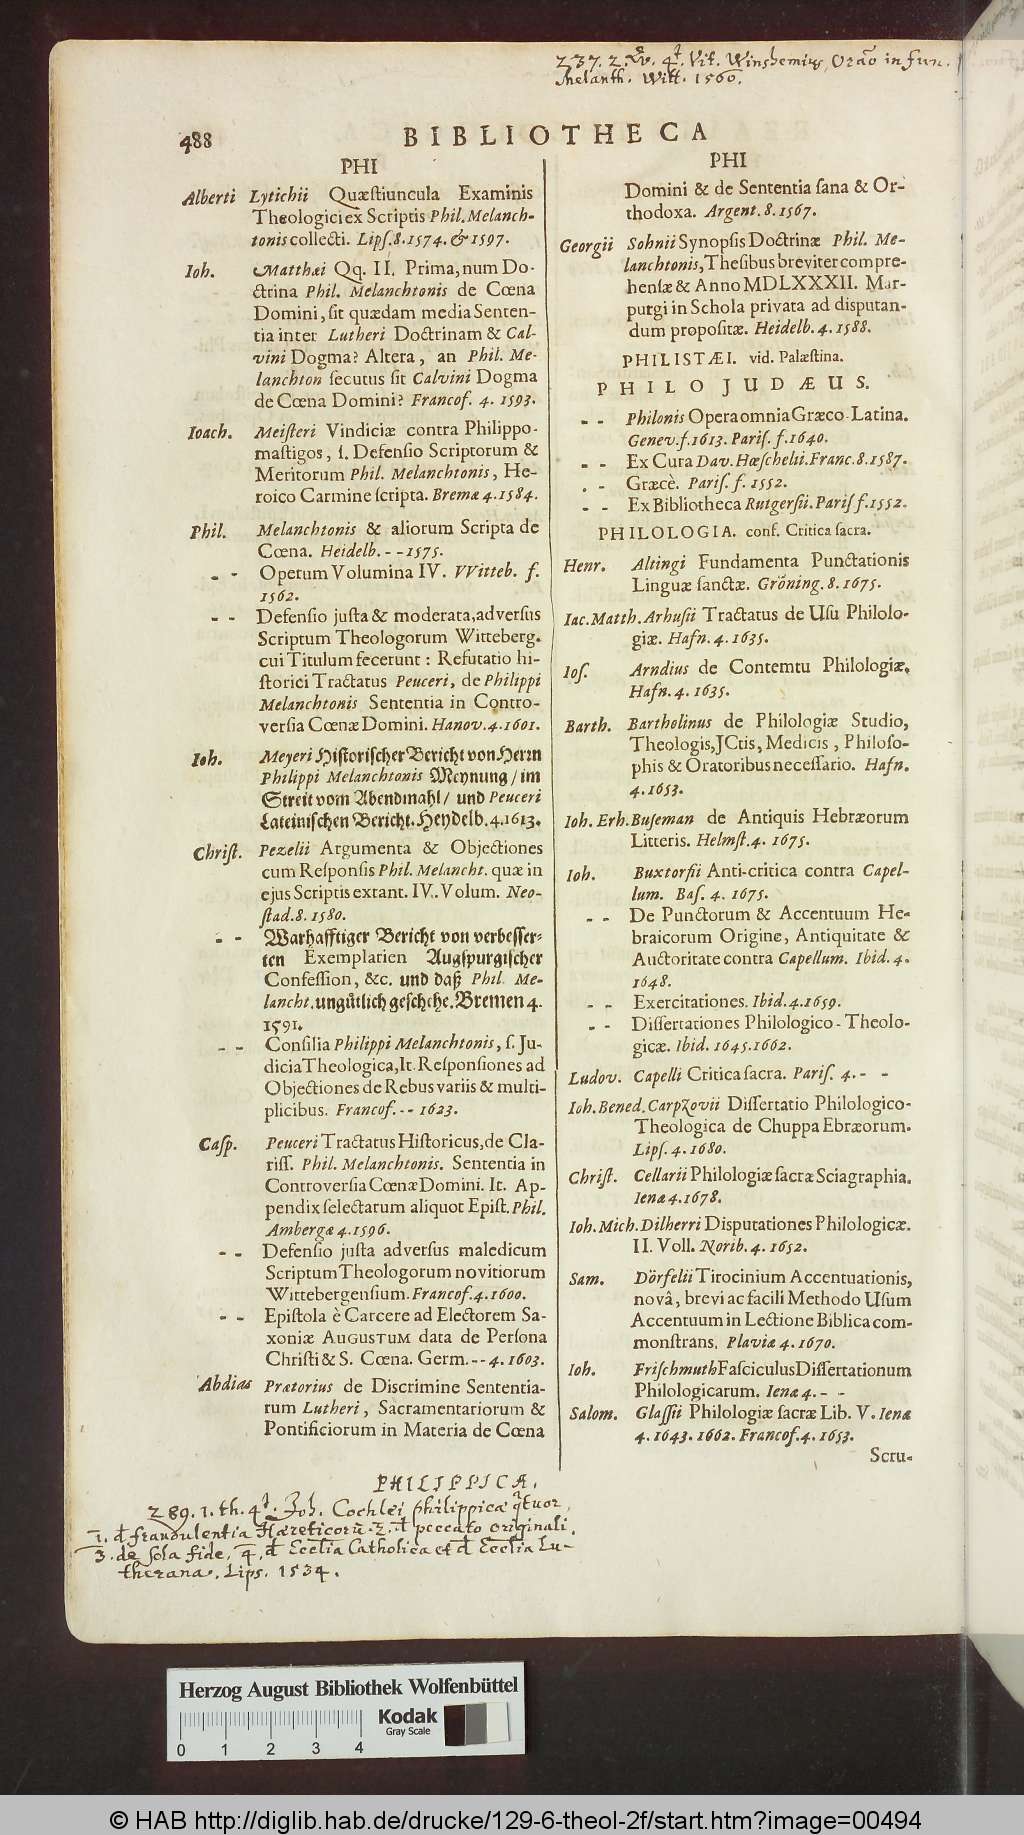 237. 2. Qv. 4t. Vit. Winshemius, Orao in fun.
Melanth. Witt. 1560.
488
BIBLIOTHECA
PHI
Alberti Lytichii Quæstiuncula Examinis
Theologici ex Scriptis Phil. Melanch-
tonis collecti. Lips. 8. 1574. & 1597.
Ioh. Matthæi Qq. II. Prima, num Do-
ctrina Phil. Melanchtonis de Cœna
Domini, sit quædam media Senten-
tia inter Lutheri Doctrinam & Cal-
vini Dogma? Altera, an Phil. Me-
lanchton secutus sit Calvini Dogma
de Cœna Domini? Francof. 4. 1593.
Ioach. Meisteri Vindiciæ contra Philippo-
mastigos, s. Defensio Scriptorum &
Meritorum Phil. Melanchtonis, He-
roico Carmine scripta. Bremæ 4. 1584.
Phil. Melanchtonis & aliorum Scripta de
Cœna. Heidelb. - - 1575.
- - Operum Volumina IV. VVitteb. f.
1562.
- - Defensio justa & moderata, adversus
Scriptum Theologorum Witteberg.
cui Titulum fecerunt: Refutatio hi-
storici Tractatus Peuceri, de Philippi
Melanchtonis Sententia in Contro-
versia Cœnæ Domini. Hanov. 4. 1601.
Ioh. Meyeri Historischer Bericht von Herrn
Philippi Melanchtonis Meynung / im
Streit vom Abendmahl / und Peuceri
Lateinischen Bericht. Heydelb. 4. 1613.
Christ. Pezelii Argumenta & Objectiones
cum Responsis Phil. Melancht. quæ in
ejus Scriptis extant. IV. Volum. Neo-
stad. 8. 1580.
- - Warhafftiger Bericht von verbesser-
ten Exemplarien Augspurgischer
Confession, &c. und daß Phil. Me-
lancht. ungütlich geschehe. Bremen 4.
1591.
- - Consilia Philippi Melanchtonis, s. Ju-
dicia Theologica, It. Responsiones ad
Objectiones de Rebus variis & multi-
plicibus. Francof. - - 1623.
Casp. Peuceri Tractatus Historicus, de Cla-
riss. Phil. Melanchtonis. Sententia in
Controversia Cœnæ Domini. It. Ap-
pendix selectarum aliquot Epist. Phil.
Ambergæ 4. 1596.
- - Defensio justa adversus maledicum
Scriptum Theologorum novitiorum
Wittebergensium. Francof. 4. 1600.
- - Epistola è Carcere ad Electorem Sa-
xoniæ AUGUSTUM data de Persona
Christi & S. Cœna. Germ. - - 4. 1603.
Abdias Prætorius de Discrimine Sententia-
rum Lutheri, Sacramentariorum &
Pontificiorum in Materia de Cœna
PHI
Domini & de Sententia sana & Or-
thodoxa. Argent. 8. 1567.
Georgii Sohnii Synopsis Doctrinæ Phil. Me-
lanchtonis, Thesibus breviter compre-
hensæ & Anno MDLXXXII. Mar-
purgi in Schola privata ad disputan-
dum propositæ. Heidelb. 4. 1588.
PHILISTÆI. vid. Palæstina.
PHILO JUDÆUS.
- - Philonis Opera omnia Græco-Latina.
Genev. f. 1613. Paris. f. 1640.
- - Ex Cura Dav. Hœschelii. Franc. 8. 1587.
- - Græcè. Paris. f. 1552.
- - Ex Bibliotheca Rutgersii. Paris f. 1552.
PHILOLOGIA. conf. Critica sacra.
Henr. Altingi Fundamenta Punctationis
Linguæ sanctæ. Gröning. 8. 1675.
Iac. Matth. Arhusii Tractatus de Usu Philolo-
giæ. Hafn. 4. 1635.
Ios. Arndius de Contemtu Philologiæ.
Hafn. 4. 1635.
Barth. Bartholinus de Philologiæ Studio,
Theologis, JCtis, Medicis, Philoso-
phis & Oratoribus necessario. Hafn.
4. 1653.
Ioh. Erh. Buseman de Antiquis Hebræorum
Litteris. Helmst. 4. 1675.
Ioh. Buxtorfii Anti-critica contra Capel-
lum. Bas. 4. 1675.
- - De Punctorum & Accentuum He-
braicorum Origine, Antiquitate &
Auctoritate contra Capellum. Ibid. 4.
1648.
- - Exercitationes. Ibid. 4. 1659.
- - Dissertationes Philologico-Theolo-
gicæ. Ibid. 1645. 1662.
Ludov. Capelli Critica sacra. Paris. 4. - -
Ioh. Bened. Carpzovii Dissertatio Philologico-
Theologica de Chuppa Ebræorum.
Lips. 4. 1680.
Christ. Cellarii Philologiæ sacræ Sciagraphia.
Ienæ 4. 1678.
Ioh. Mich. Dilherri Disputationes Philologicæ.
II. Voll. Norib. 4. 1652.
Sam. Dörfelii Tirocinium Accentuationis,
novâ, brevi ac facili Methodo Usum
Accentuum in Lectione Biblica com-
monstrans. Plaviæ 4. 1670.
Ioh. Frischmuth Fasciculus Dissertationum
Philologicarum. Ienæ 4. - -
Salom. Glassii Philologiæ sacræ Lib. V. Ienæ
4. 1643. 1662. Francof. 4. 1653.
Scru-
PHILIPPICA.
289. 1. th. 4t. Joh. Cochlei philippicæ qtuor,
1. d fraudulentia Hæreticorū. 2. d peccato originali.
3. de sola fide. 4. d Ecclia Catholica et d Ecclia Lu-
therana. Lips. 1534.
Herzog August Bibliothek Wolfenbüttel
Kodak
Gray Scale
0 1 2 3 4
© HAB http://diglib.hab.de/drucke/129-6-theol-2f/start.htm?image=00494